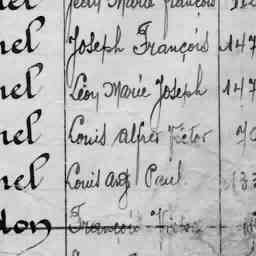 nel Joseph François 147
nel Léon Marie Joseph 147
nel Louis Alfred Victor
nel Louis Aug Paul 133
don François Victor